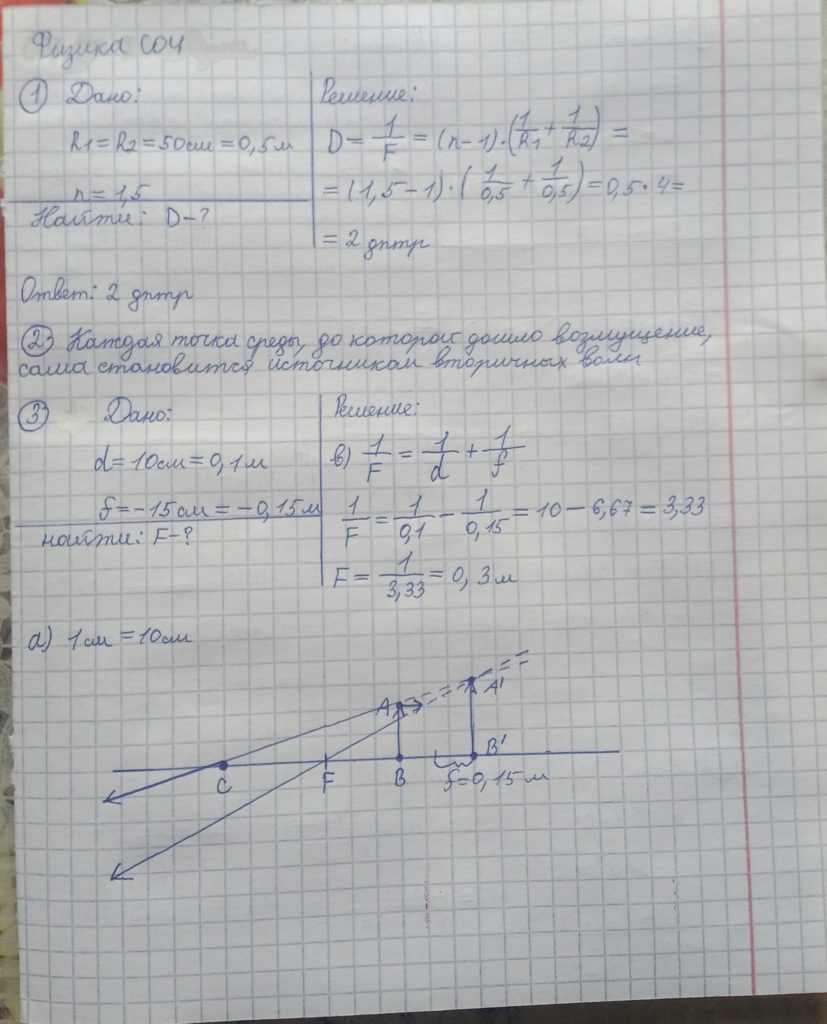 Физика СОЧ
① Дано:
R1=R2=50см=0,5м
n=1,5
Найти: D-?
Решение:
D= 1/F = (n-1)·(1/R1+1/R2) =
=(1,5-1)·(1/0,5+1/0,5)=0,5·4=
=2 дптр
Ответ: 2 дптр
② Каждая точка среды, до которой дошло возмущение,
сама становится источником вторичных волн
③ Дано:
d=10см=0,1м
f=-15см=-0,15м
найти: F-?
Решение:
в) 1/F = 1/d + 1/f
1/F = 1/0,1 - 1/0,15 = 10-6,67=3,33
F= 1/3,33 = 0,3м
а) 1см=10см
A A'
C F B B'
f=0,15м